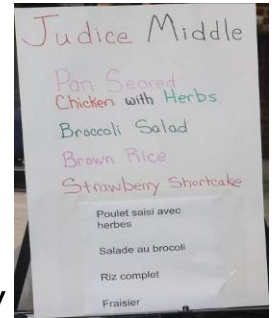 Judice Middle
Pan Seared
Chicken with Herbs
Broccoli Salad
Brown Rice
Strawberry Shortcake
Poulet saisi avec
herbes
Salade au brocoli
Riz complet
Fraisier
y